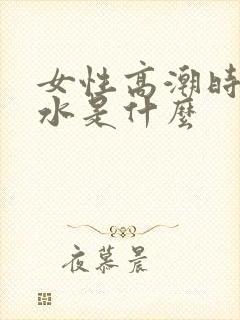 女性高潮時
水是什麼
夜慕晨